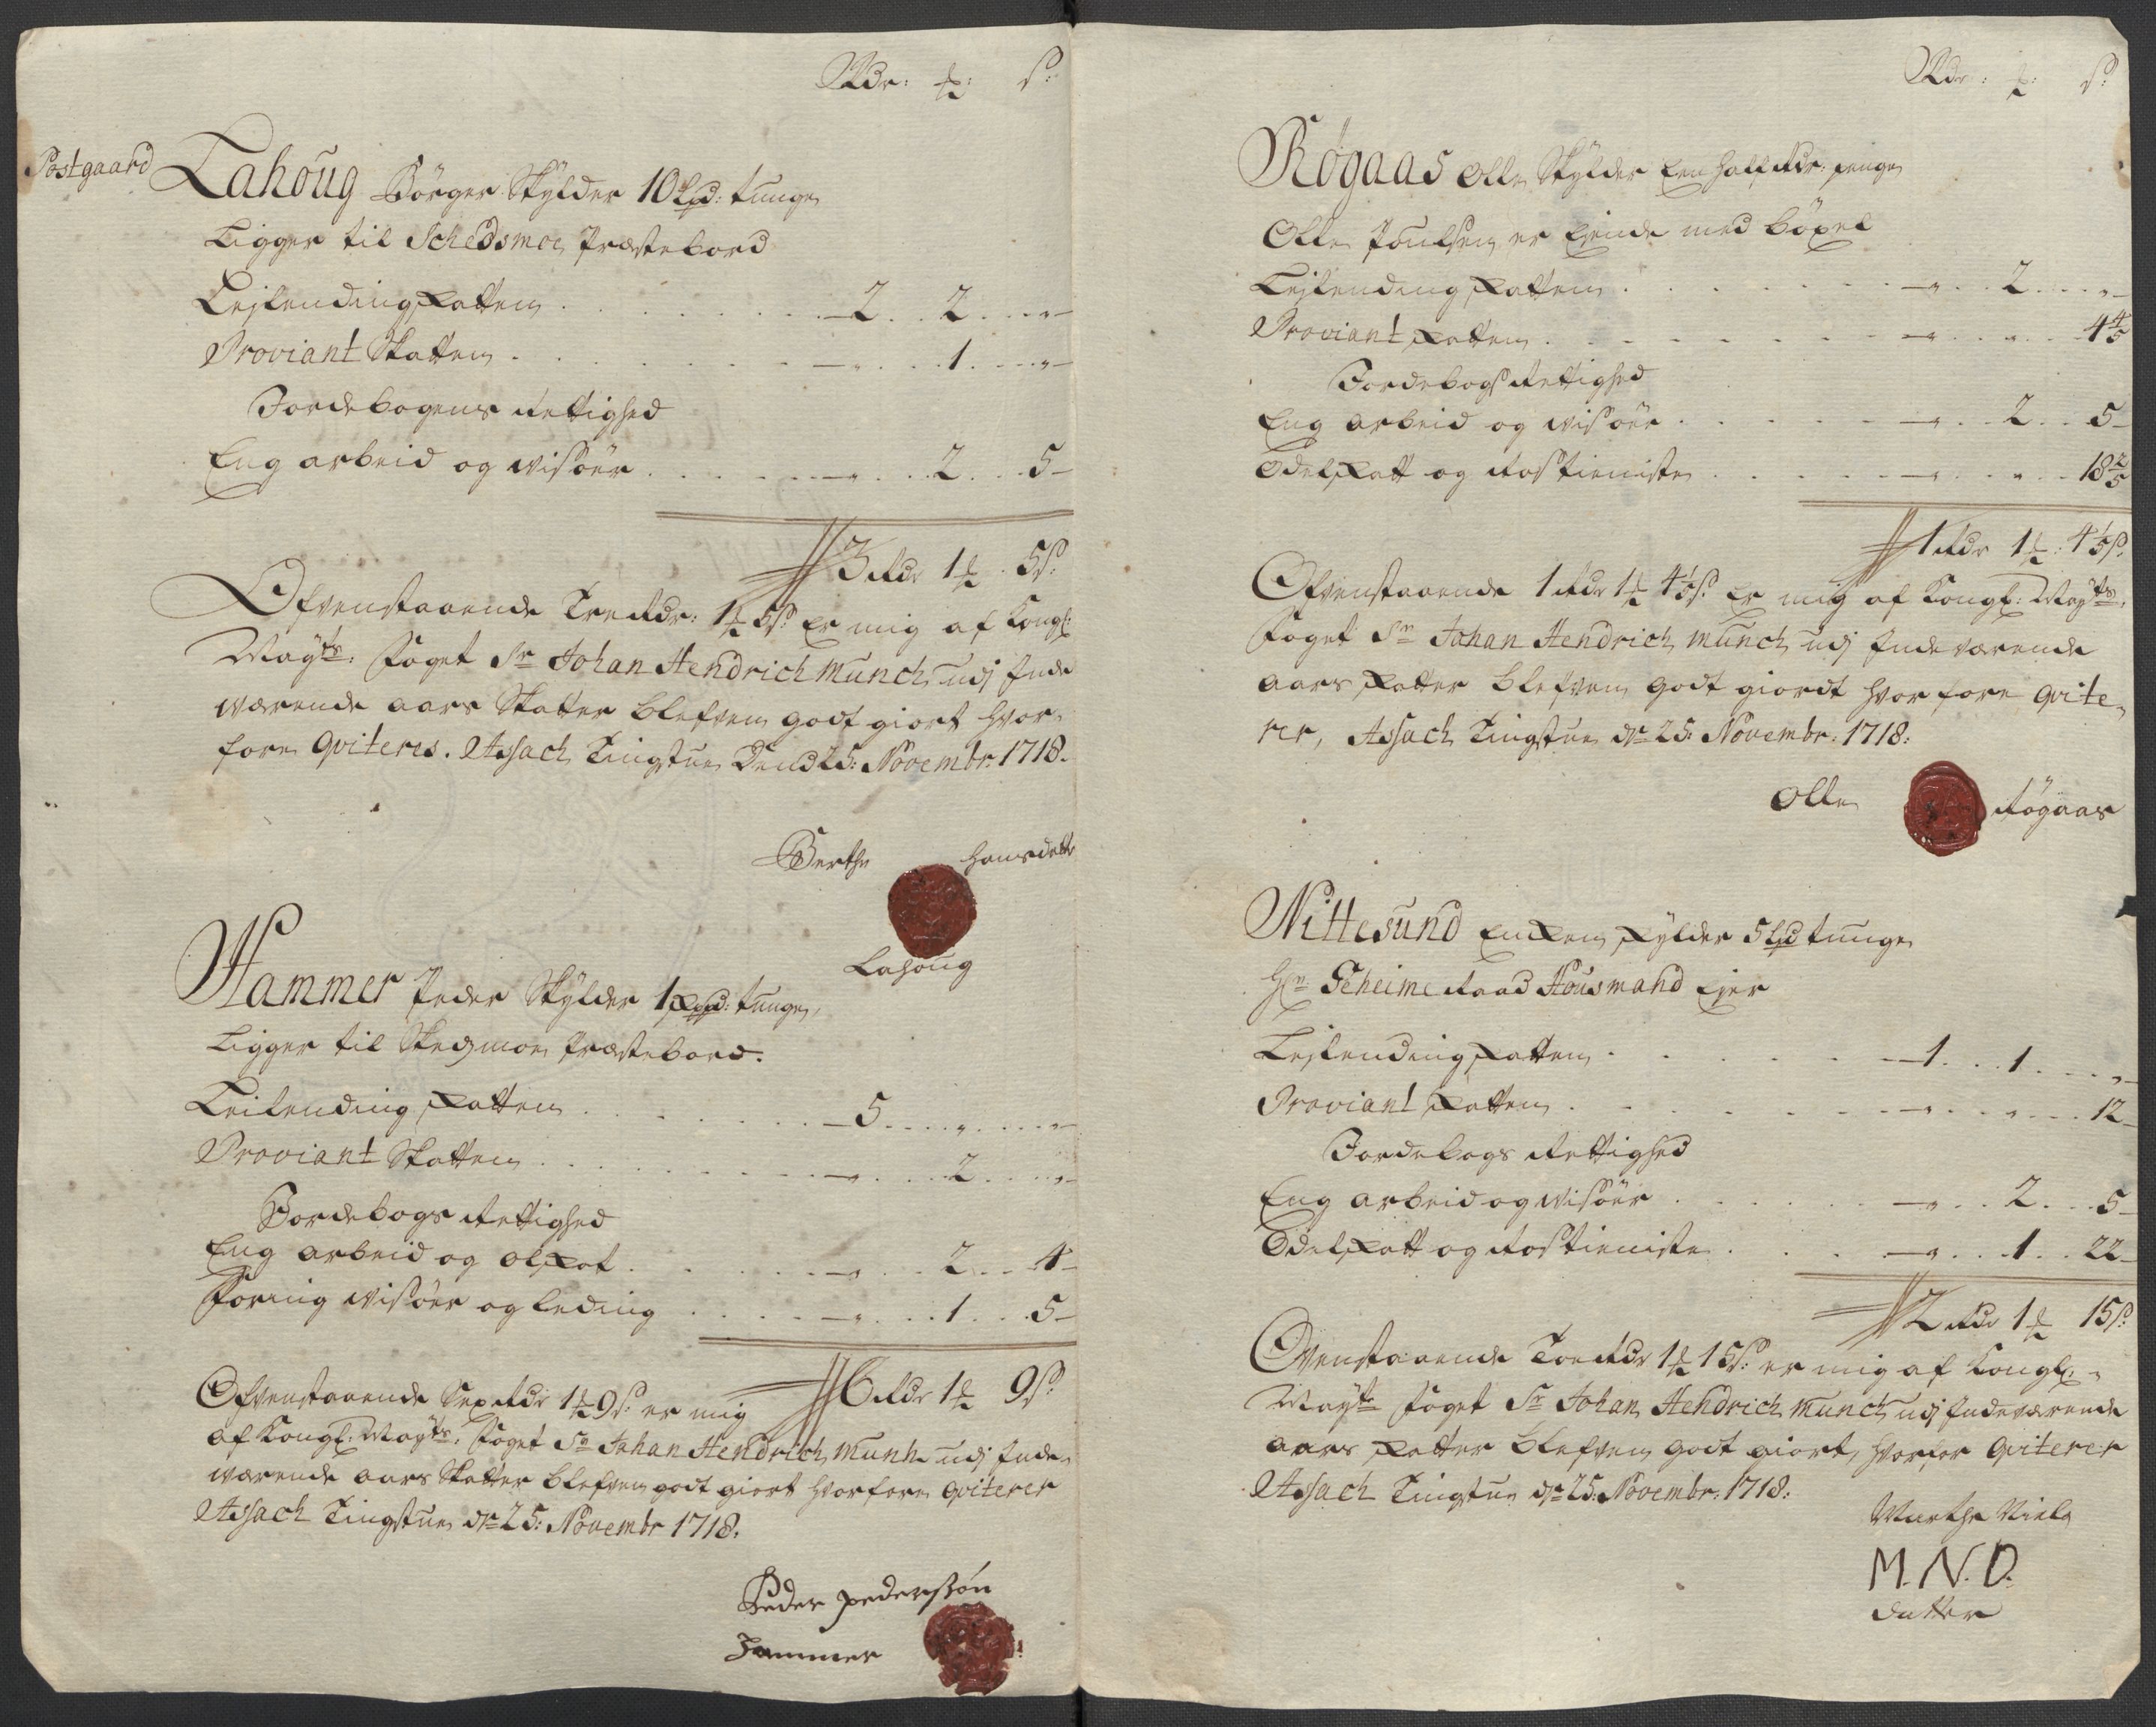 Rdr: ß:
Postgaard
Lahoug Börger Skylder 10 Lpd: tunge
Ligger til Schedsmoe Præstebord
Lejlending Skatten . . . 2 . . 2 . . „
Proviant Skatten . . . „ . . 1 . . „
Jordebogens Rettighed
Eng arbeid og wisöer . . . „ . . 2 . . 5
3 Rdr 1 5 ß:
Ofvenstaaende Tre Rdr: 1 5 ß: er mig af Kongl:
Mayts: Foget Sr Johan Hendrich Munch udj Inde
wærende aars Skatter blefven godt giort hvor-
fore qviteres. Assach Tingstue Dend 25: Novembr: 1718.
Berthe Hansdatter
Lahoug
Hammer Peder Skylder 1 Skpd: tunge,
Ligger til Skedzmoe Præstebord.
Leilending Skatten . . . 5 . . „ . . „
Proviant Skatten . . . „ . . 2 . . „
Jordebogs Rettighed
Eng arbeid og olskat . . . „ . . 2 . . 4
Foring wisöer og leding . . . „ . . 1 . . 5
6 Rdr 1 9 ß:
Ofvenstaaende Sex Rdr 1 9 ß: er mig
af Kongl: Mayts: Foget Sr Johan Hendrich Munh udj Inde-
wærende aars Skatter blefven godt giort hvorfore qviterer
Assach Tingstue dn 25: Novembr 1718.
Peder pederssön
Hammer
Rdr: ß:
Røgaas Olle Skylder Een half Rdr: penge
Olle Poulsen er Ejende med böxel
Lejlending Skatten . . . „ . . 2 . . „
Proviant Skatten . . . „ . . „ . . 4 4/5
Jordebogs Rettighed
Eng arbeid og wisöer . . . „ . . 2 . . 5
Odelskatt og Rostieniste . . . „ . . „ . . 18 2/5
1 Rdr 1 : 4 1/5 ß:
Ofvenstaaende 1 Rdr 1 4 1/5 ß: Er mig af Kongl: Mayts:
Foget Sr Johan Hendrich Munch udj Indeværende
aars Skatter blefven godt giordt hvorfore qvite-
rer, Assach Tingstue dn 25: Novembr: 1718:
Olle Røgaas
Nittesund Enken Skylder 5 Lpd tunge
Hr Geheime Raad Housmand Ejer
Lejlending Skatten . . . 1 . . 1 . . „
Proviant Skatten . . . „ . . „ . . 12
Jordebogs Rettighed
Eng arbeid og wisöer . . . „ . . 2 . . 5
Odelskatt og Rostieniste . . . „ . . 1 . . 22
2 Rdr 1 15 ß:
Ovenstaaende Toe Rdr 1 15 ß: er mig af Kongl:
Mayts Foget Sr Johan Hendrich Munch udj Indeværende
aars Skatter blefven godt giort, hvorfor qviterer
Assach Tingstue dn 25: Novembr: 1718:
Marthe Niels
M. N. D.
datter